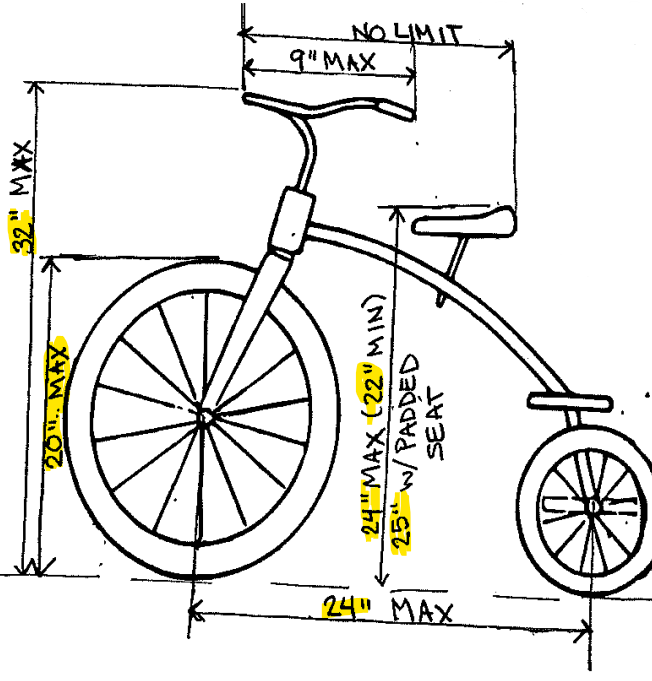 NO LIMIT
9" MAX
32" MAX
20" MAX
24" MAX (22" MIN)
25" w/PADDED
SEAT
24" MAX